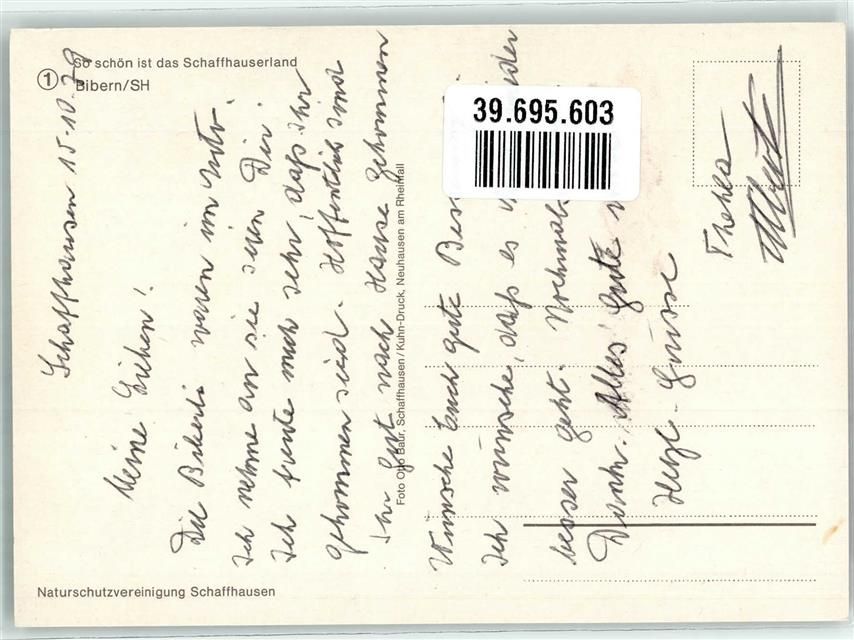 So schön ist das Schaffhauserland
1
Bibern/SH
39.695.603
Schaffhausen 15.10.79
Meine Lieben!
Die Bikerli waren im Auto.
Ich nehme an sie seien Dir.
Ich freute mich sehr, daß ihr
gekommen seid. Hoffentlich sind
Ihr gut nach Hause gekommen
Wünsche Euch gute
Ich wünsche, daß es
besser geht. Nochmals
Dank. Alles Gute
Herzl. Grüsse
Thekla
Foto Otto Baur, Schaffhausen / Kuhn-Druck, Neuhausen am Rheinfall
Naturschutzvereinigung Schaffhausen